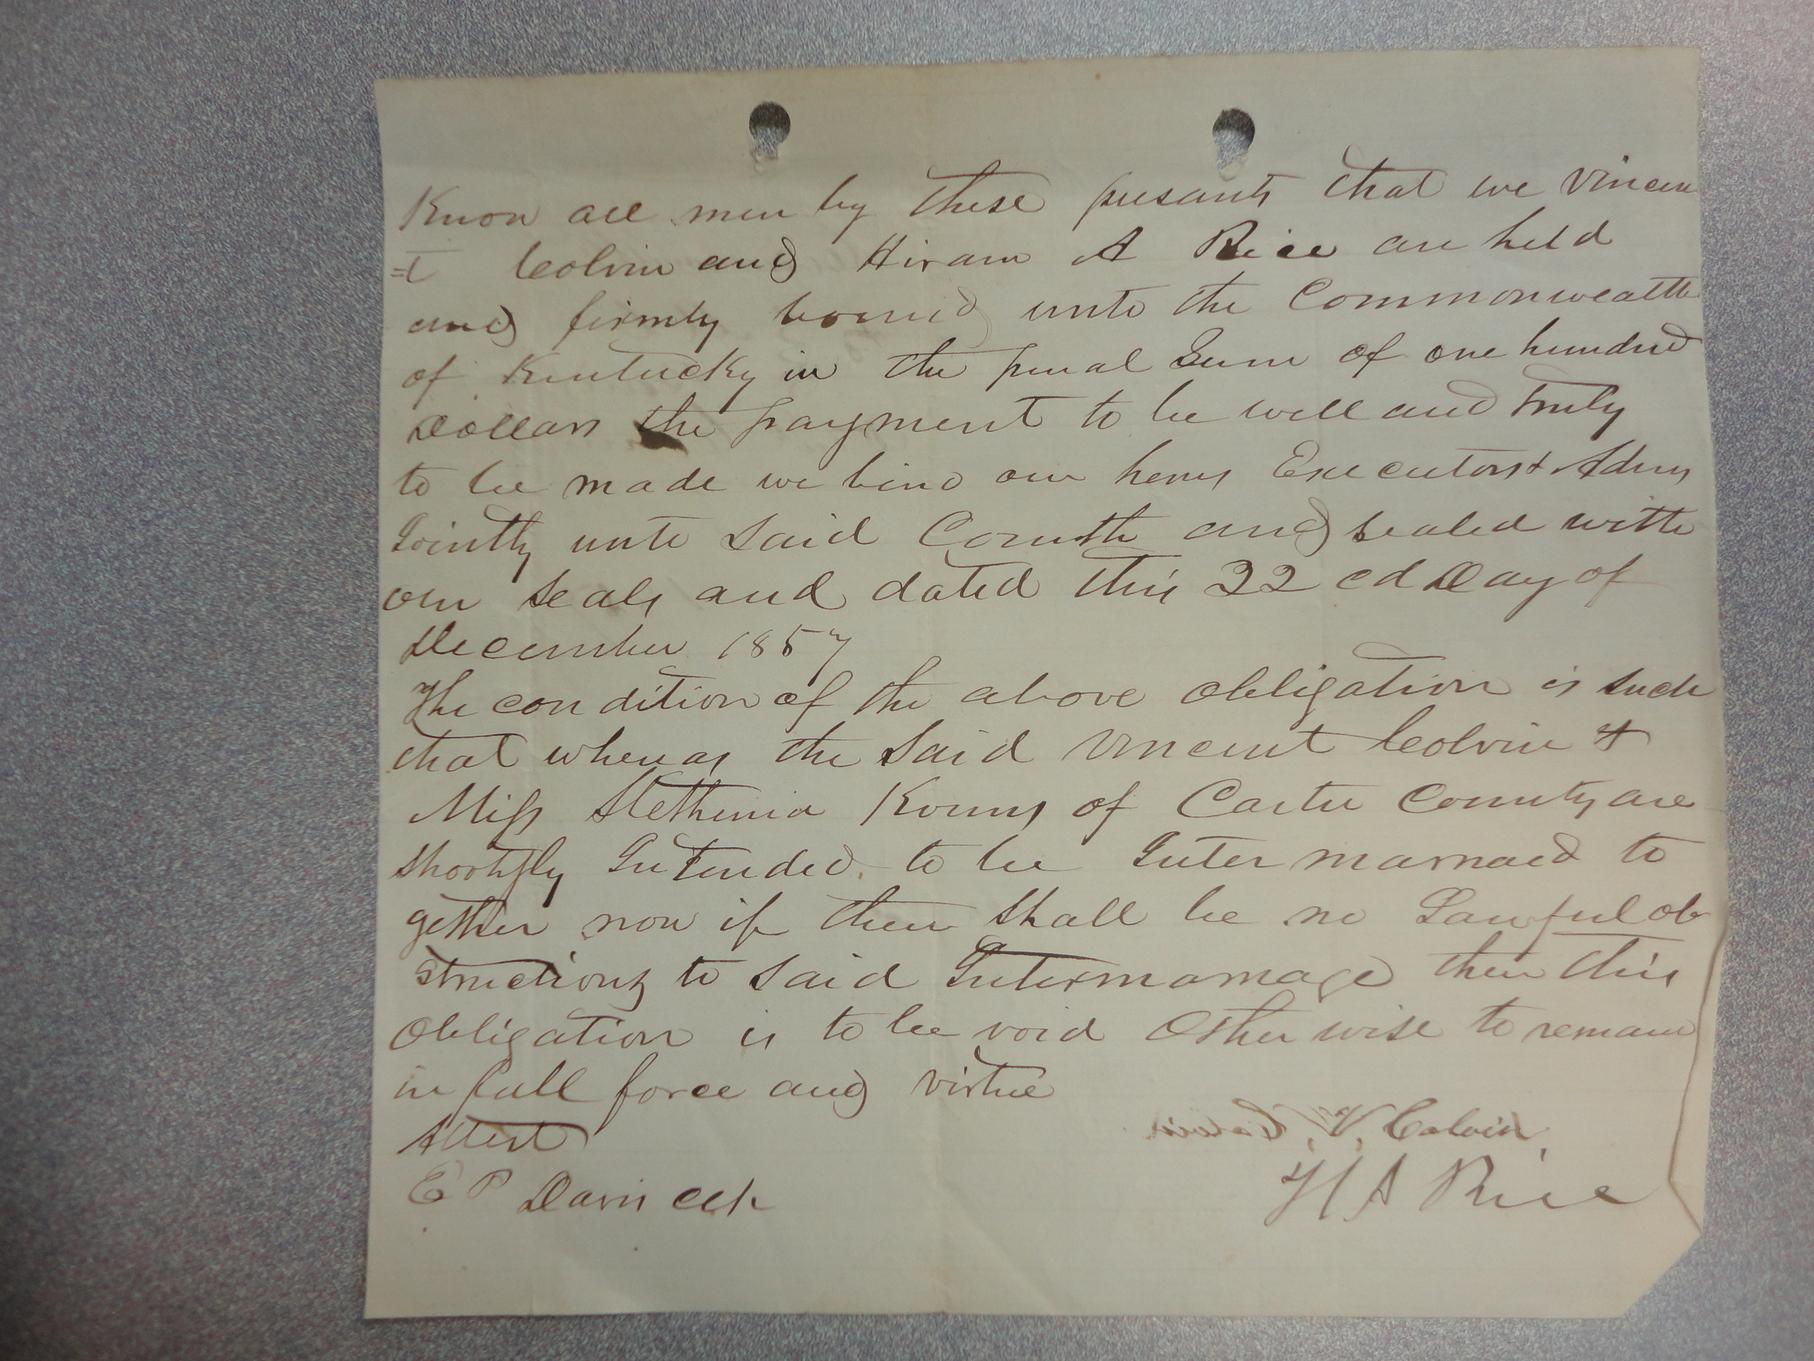 Know all men by these presants that we Vincen
=t Colvin and Hiram A Rice are held
and firmly bound unto the Commonwealth
of Kentucky in the penal Sum of one hundred
Dollars the payment to be well and truly
to be made we bind our heirs Executors & Adms
Jointly unto Said Comth and sealed with
our Seals and dated this 22 cd Day of
December 1857
The condition of the above obligation is such
that whereas the Said Vincent Colvin &
Miss of Carter County are
Shortly Intended to be Inter marraed to
gether now if there Shall be no Lawful ob
structions to Said Intermarriage then this
obligation is to be void Other wise to remain
in full force and virtue
Attest
E P Davis clk
V, Colvin
H A Rice